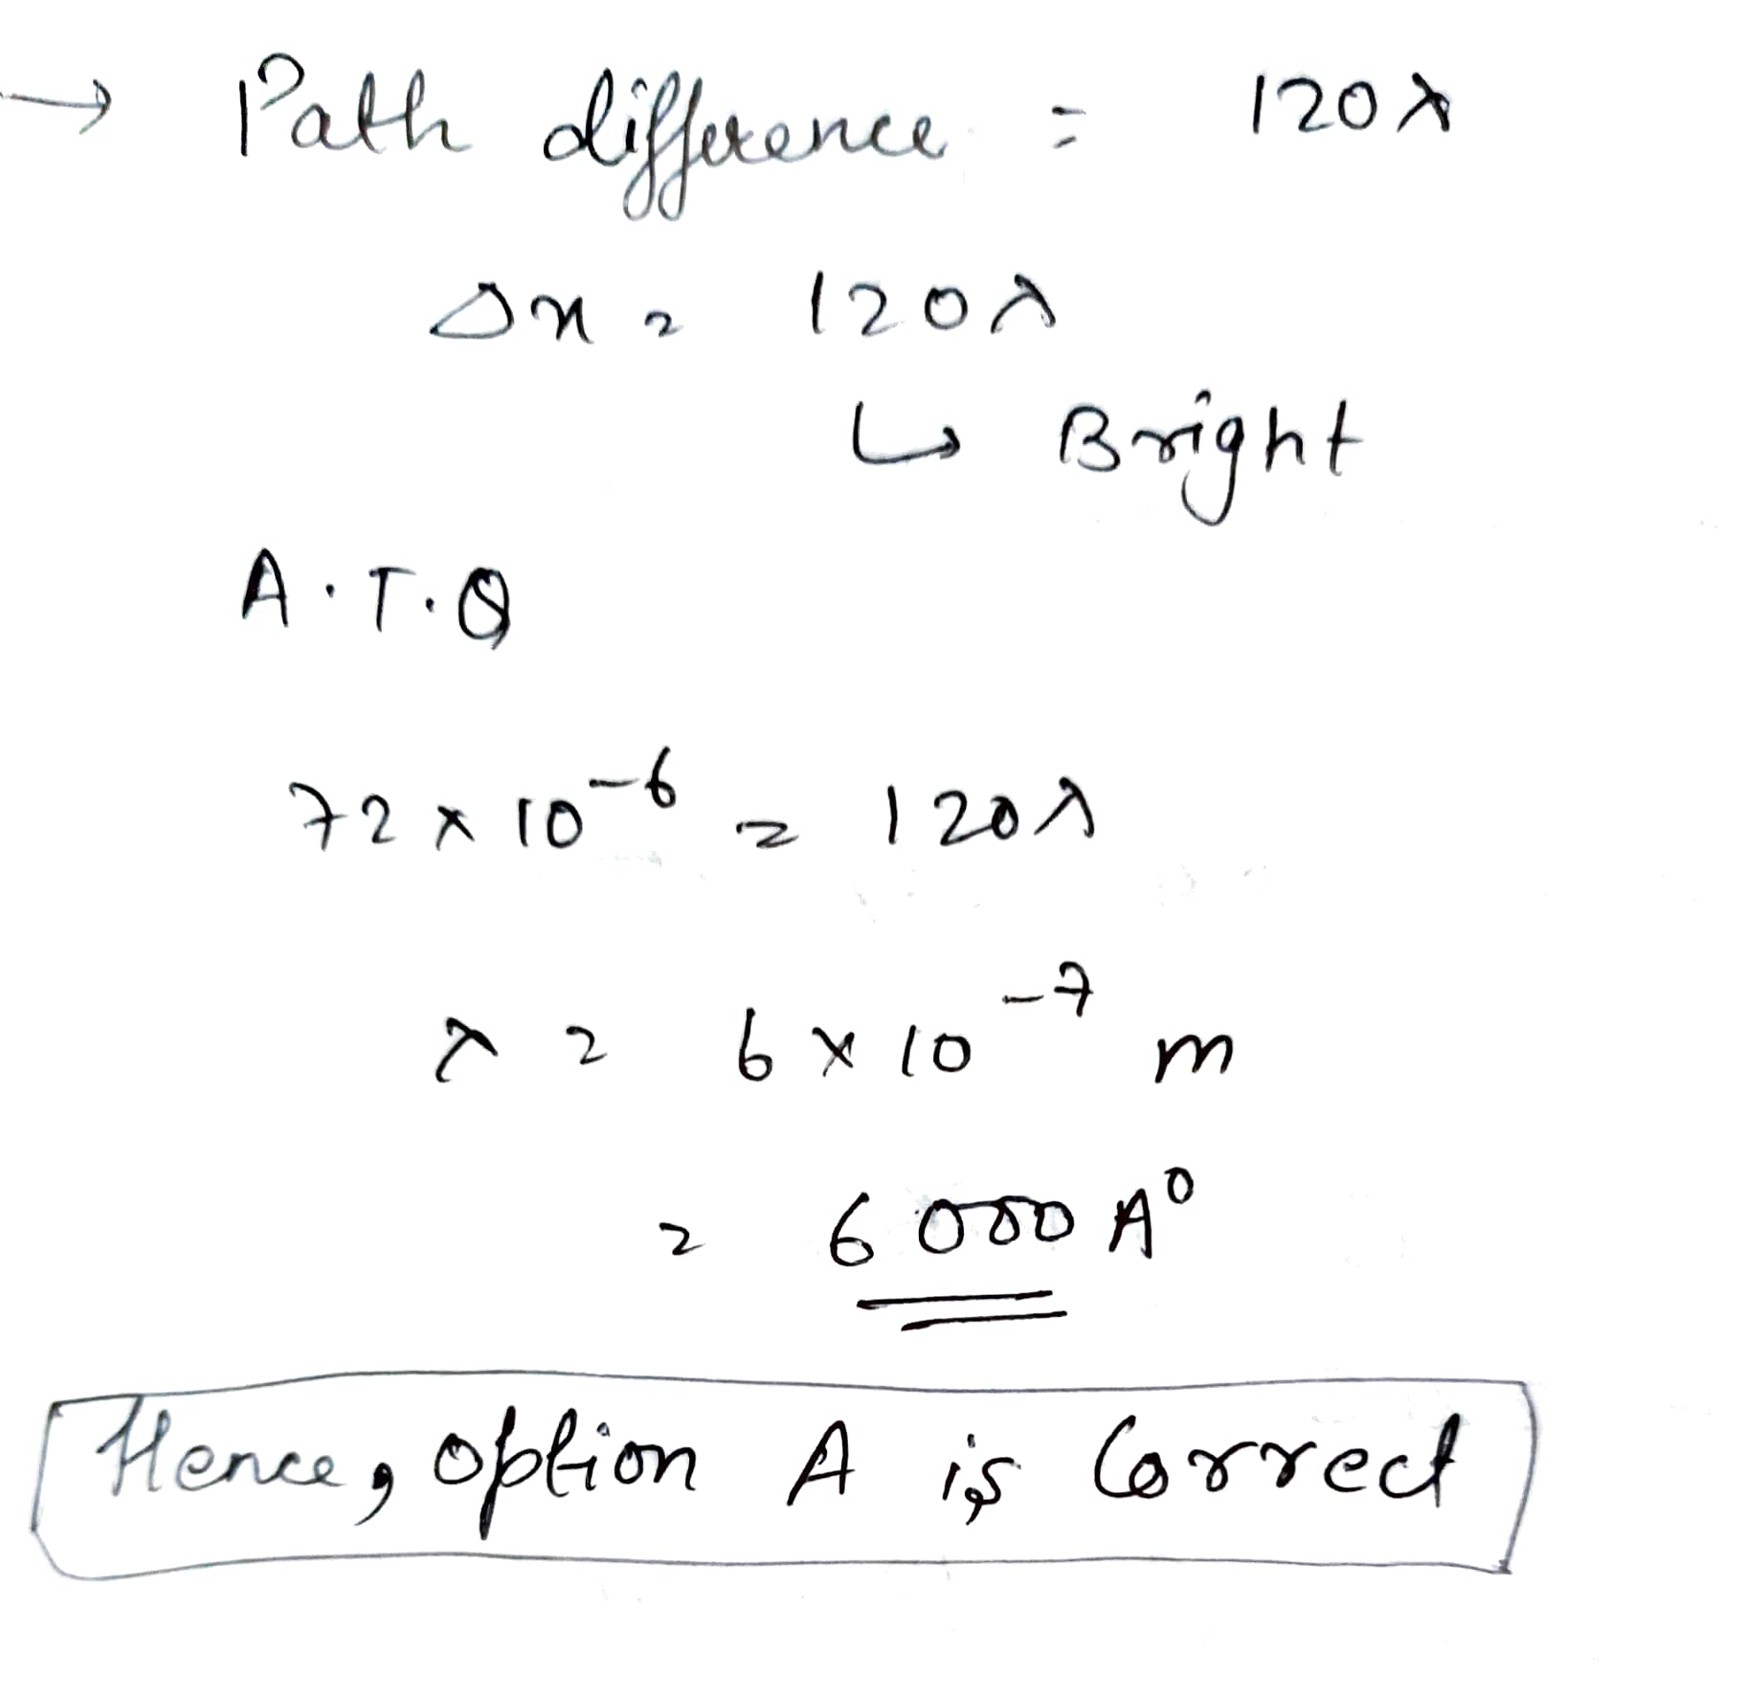 → Path difference = 120λ
Δx = 120λ
↳ Bright
A.T.Q
72 × 10⁻⁶ = 120λ
λ = 6 × 10⁻⁷ m
= 6000 A⁰
Hence, option A is Correct